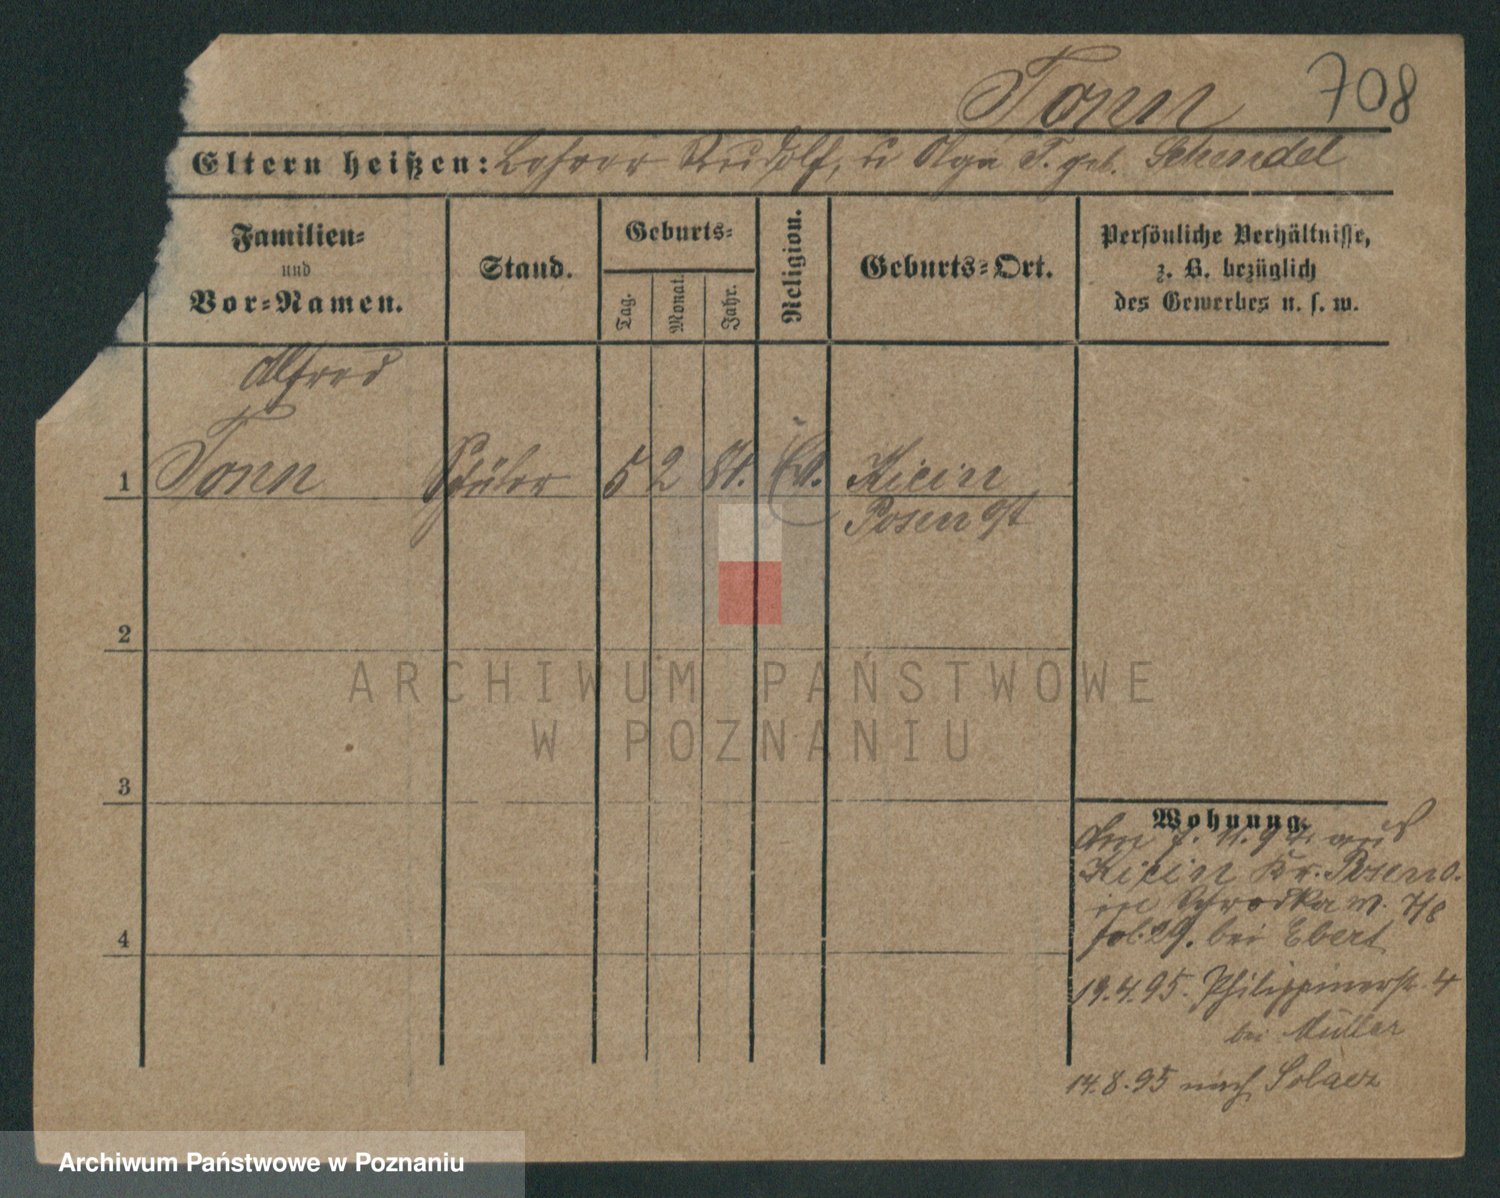 Tonn 708
Eltern heißen: Lehrer Rudolf, u Olga T. geb. Schendel
Familien-
und
Vor-Namen.
Stand.
Geburts-
Tag.
Monat.
Jahr.
Religion.
Geburts-Ort.
Persönliche Verhältnisse,
z. B. bezüglich
des Gewerbes u. s. w.
Alfred
1 Tonn Schüler 5 2 81. Ev. Kicin
Posen Ost
2
3
4
Wohnung.
Am 7. 11. 94 aus
Kicin Kr. Posen O.
in Schrodka M. 7/8
fol. 29. bei Ebert
19.4.95. Philippinerstr. 4
bei Müller
14.8.95 nach Solacz
ARCHIWUM PAŃSTWOWE
W POZNANIU
Archiwum Państwowe w Poznaniu